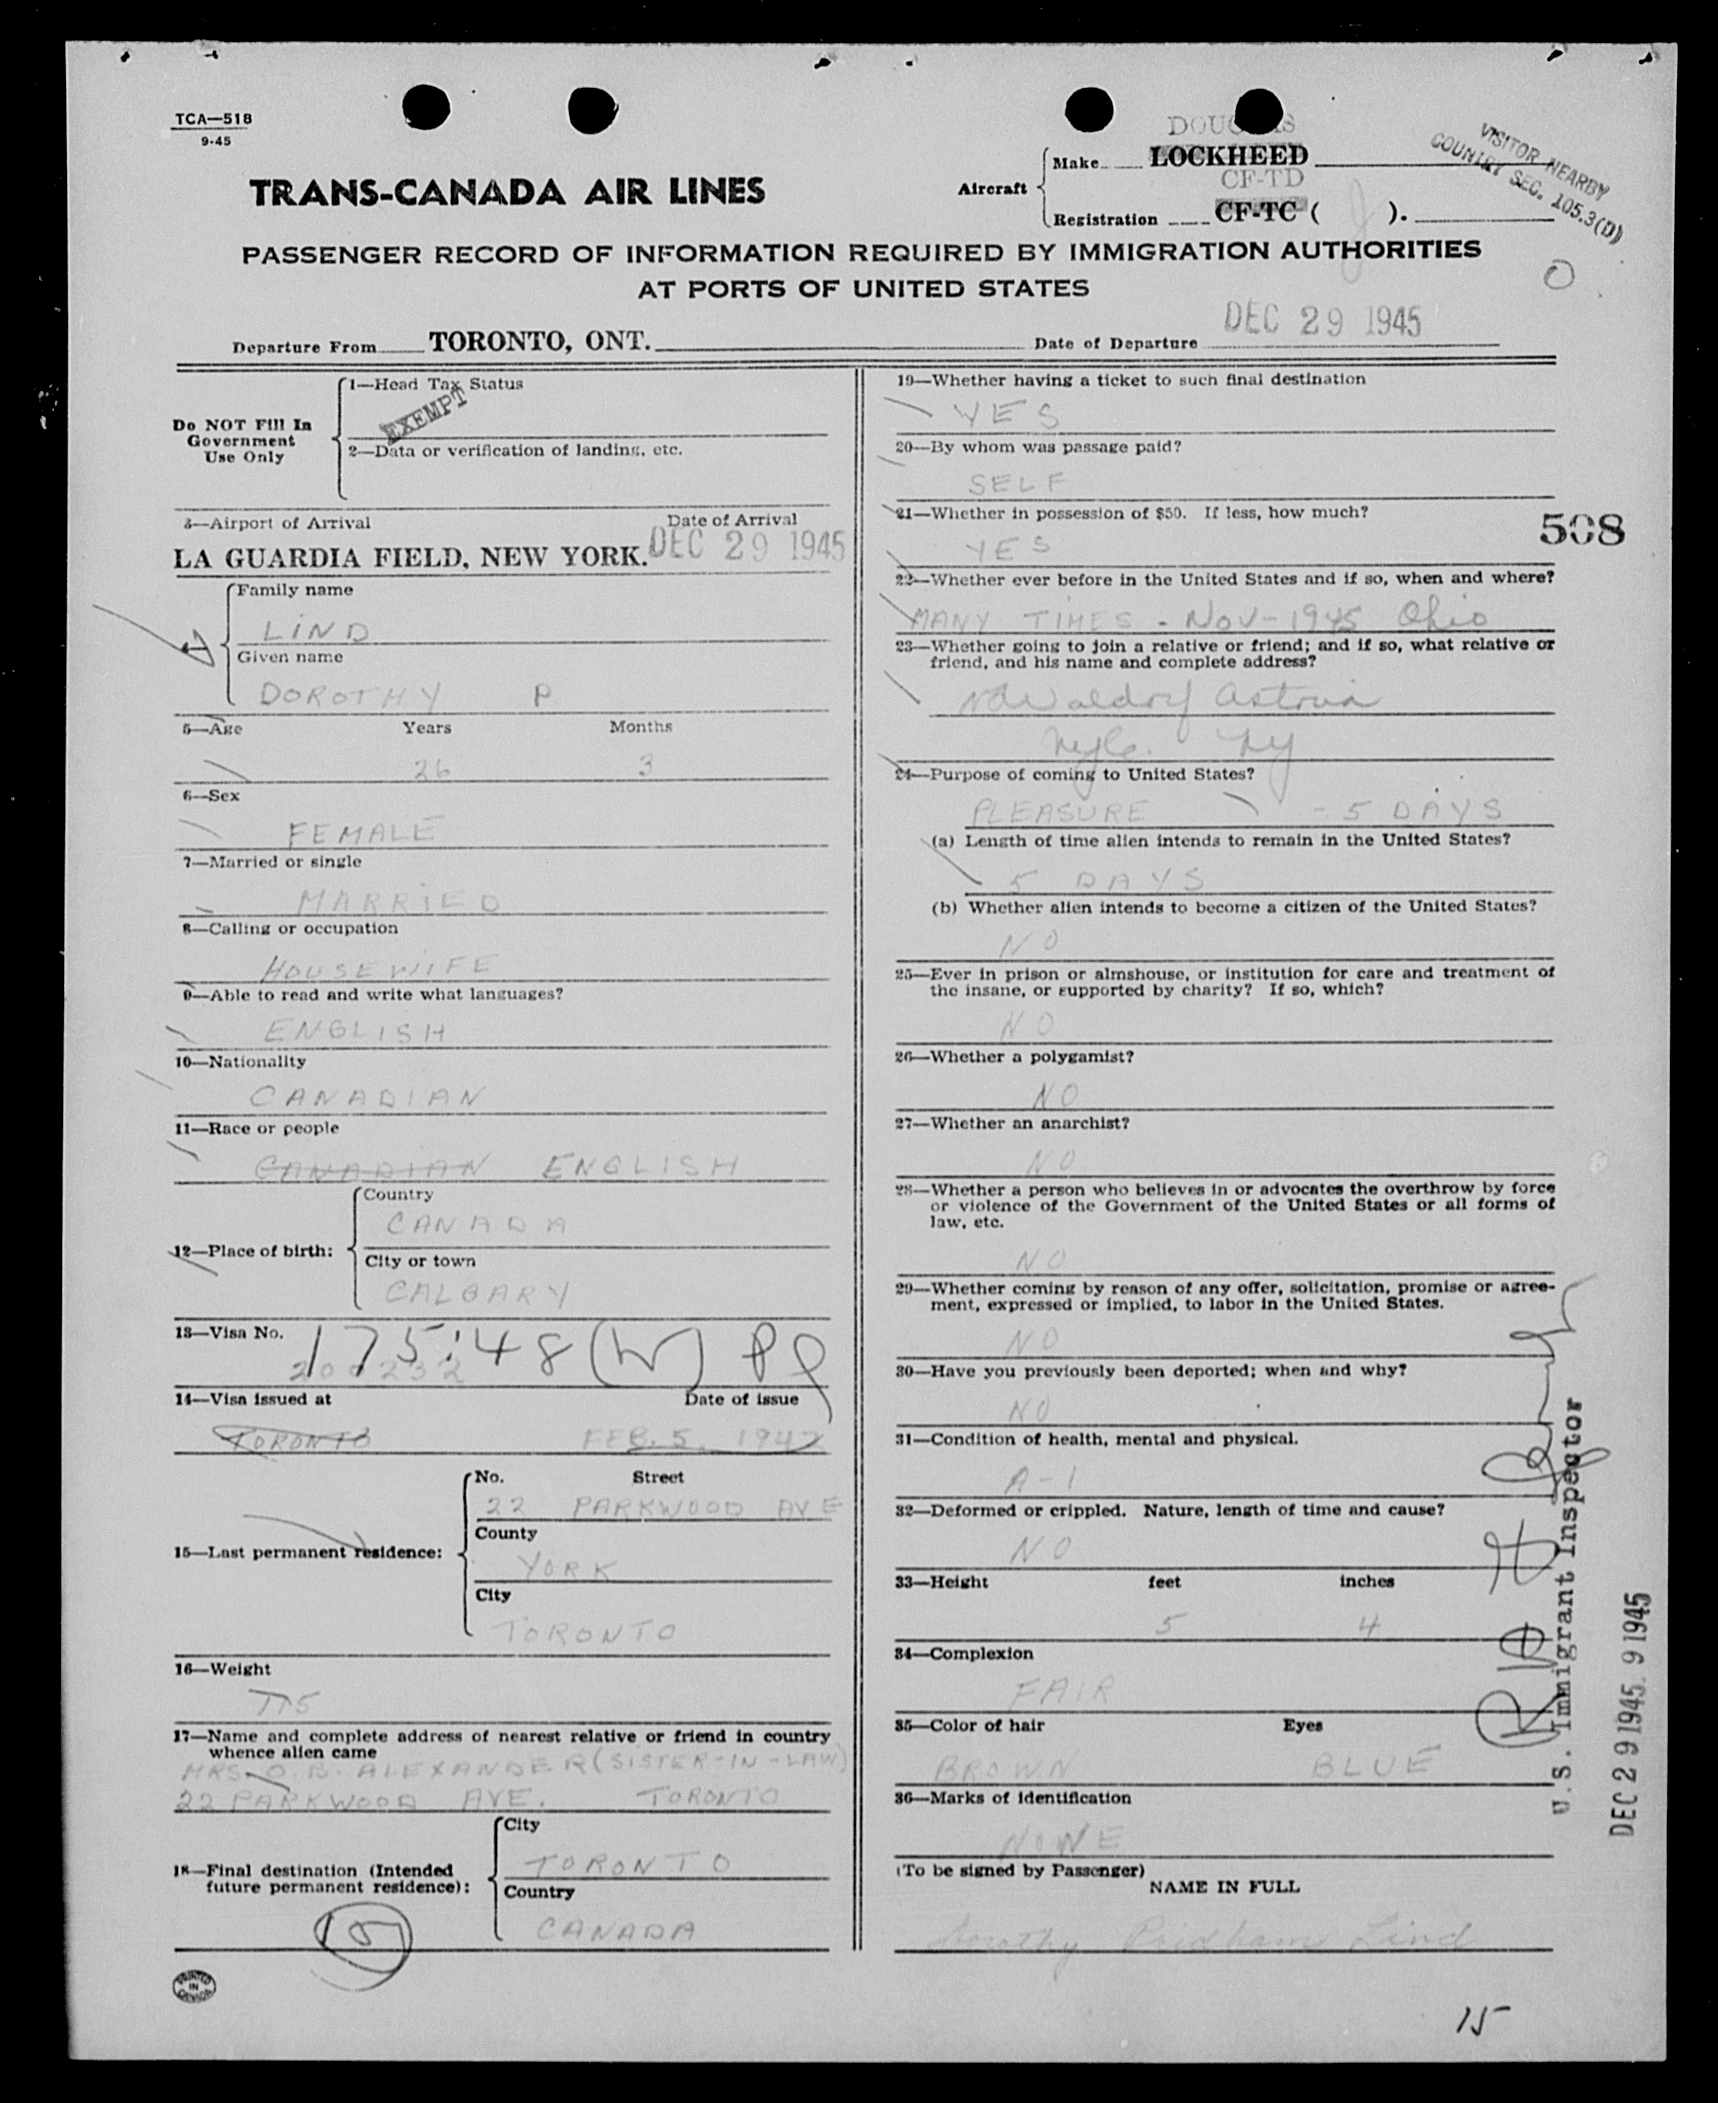 TCA—518
9-45
TRANS-CANADA AIR LINES
Aircraft
DOUGLAS
Make LOCKHEED
CF-TD
Registration CF-TC ( J ).
VISITOR NEARBY
COUNTRY SEC. 105.3(D)
PASSENGER RECORD OF INFORMATION REQUIRED BY IMMIGRATION AUTHORITIES
AT PORTS OF UNITED STATES
O
Departure From TORONTO, ONT. Date of Departure DEC 29 1945
Do NOT Fill In
Government
Use Only
1—Head Tax Status
EXEMPT
2—Data or verification of landing, etc.
3—Airport of Arrival Date of Arrival
LA GUARDIA FIELD, NEW YORK. DEC 29 1945
4
Family name
LIND
Given name
DOROTHY P
5—Age Years Months
26 3
6—Sex
FEMALE
7—Married or single
MARRIED
8—Calling or occupation
HOUSEWIFE
9—Able to read and write what languages?
ENGLISH
10—Nationality
CANADIAN
11—Race or people
CANADIAN ENGLISH
12—Place of birth:
Country
CANADA
City or town
CALGARY
13—Visa No.
175:48 (W)
200232
14—Visa issued at Date of issue
TORONTO FEB. 5, 1942
15—Last permanent residence:
No. Street
22 PARKWOOD AVE
County
YORK
City
TORONTO
16—Weight
115
17—Name and complete address of nearest relative or friend in country
whence alien came
MRS. O. B. ALEXANDER (SISTER-IN-LAW)
22 PARKWOOD AVE. TORONTO
18—Final destination (Intended
future permanent residence):
City
TORONTO
Country
CANADA
PRINTED
IN
CANADA
19—Whether having a ticket to such final destination
YES
20—By whom was passage paid?
SELF
21—Whether in possession of $50. If less, how much?
YES
508
22—Whether ever before in the United States and if so, when and where?
MANY TIMES - Nov - 1945 Ohio
23—Whether going to join a relative or friend; and if so, what relative or
friend, and his name and complete address?
Waldorf Astoria
NY
24—Purpose of coming to United States?
PLEASURE - 5 DAYS
(a) Length of time alien intends to remain in the United States?
5 DAYS
(b) Whether alien intends to become a citizen of the United States?
NO
25—Ever in prison or almshouse, or institution for care and treatment of
the insane, or supported by charity? If so, which?
NO
26—Whether a polygamist?
NO
27—Whether an anarchist?
NO
28—Whether a person who believes in or advocates the overthrow by force
or violence of the Government of the United States or all forms of
law, etc.
NO
29—Whether coming by reason of any offer, solicitation, promise or agree-
ment, expressed or implied, to labor in the United States.
NO
30—Have you previously been deported; when and why?
NO
31—Condition of health, mental and physical.
A-1
32—Deformed or crippled. Nature, length of time and cause?
NO
33—Height feet inches
5 4
34—Complexion
FAIR
35—Color of hair Eyes
BROWN BLUE
36—Marks of identification
NONE
(To be signed by Passenger)
NAME IN FULL
Dorothy Pridham Lind
U.S. Immigrant Inspector
DEC 29 1945 9 1945
15